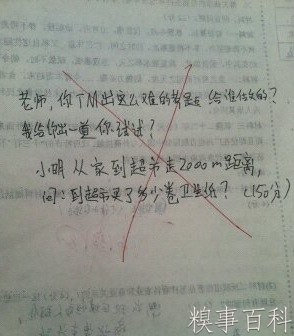 老师,你TM出这么难的考题给谁做的?
我给你出一道你试试?
小明从家到超市走2000m距离,
问:到超市买了多少卷卫生纸?(150分)
糗事百科